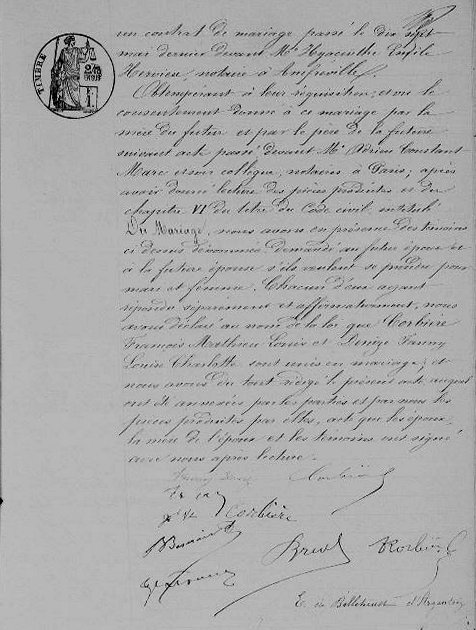 TIMBRE
un contrat de mariage passé le dix sept
mai dernier devant Me Hyacinthe Emile
notaire à
Obtempérant à leur réquisition; et vu le
consentement donné à ce mariage par la
mère du futur et par le père de la future
suivant acte passé devant Me Adrien Constant
Marc et son collègue, notaires à Paris; après
avoir donné lecture des pièces produites et du
chapitre VI du titre du Code civil intitulé
Du Mariage, nous avons en présence des témoins
ci dessus dénommés demandé au futur époux et
à la future épouse s'ils veulent se prendre pour
mari et femme. Chacun d'eux ayant
répondu séparément et affirmativement, nous
avons déclaré au nom de la loi que Corbière
François Mathieu Louis et Denize Fanny
Louise Charlotte sont unis en mariage; et
nous avons du tout rédigé le présent acte, auquel
ont été annexées par les parties et par nous les
pièces produites par elles, acte que les époux,
la mère de l'époux et les témoins ont signé
avec nous après lecture.
Corbière
Corbière
Corbière
E. de